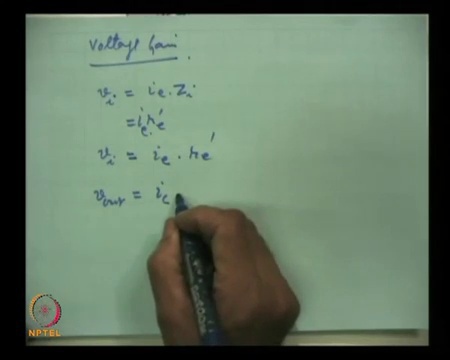 Voltage Gain
v_i = i_e . Z_i
= i_e r_e'
v_i = i_e . r_e'
v_out = i_c
NPTEL